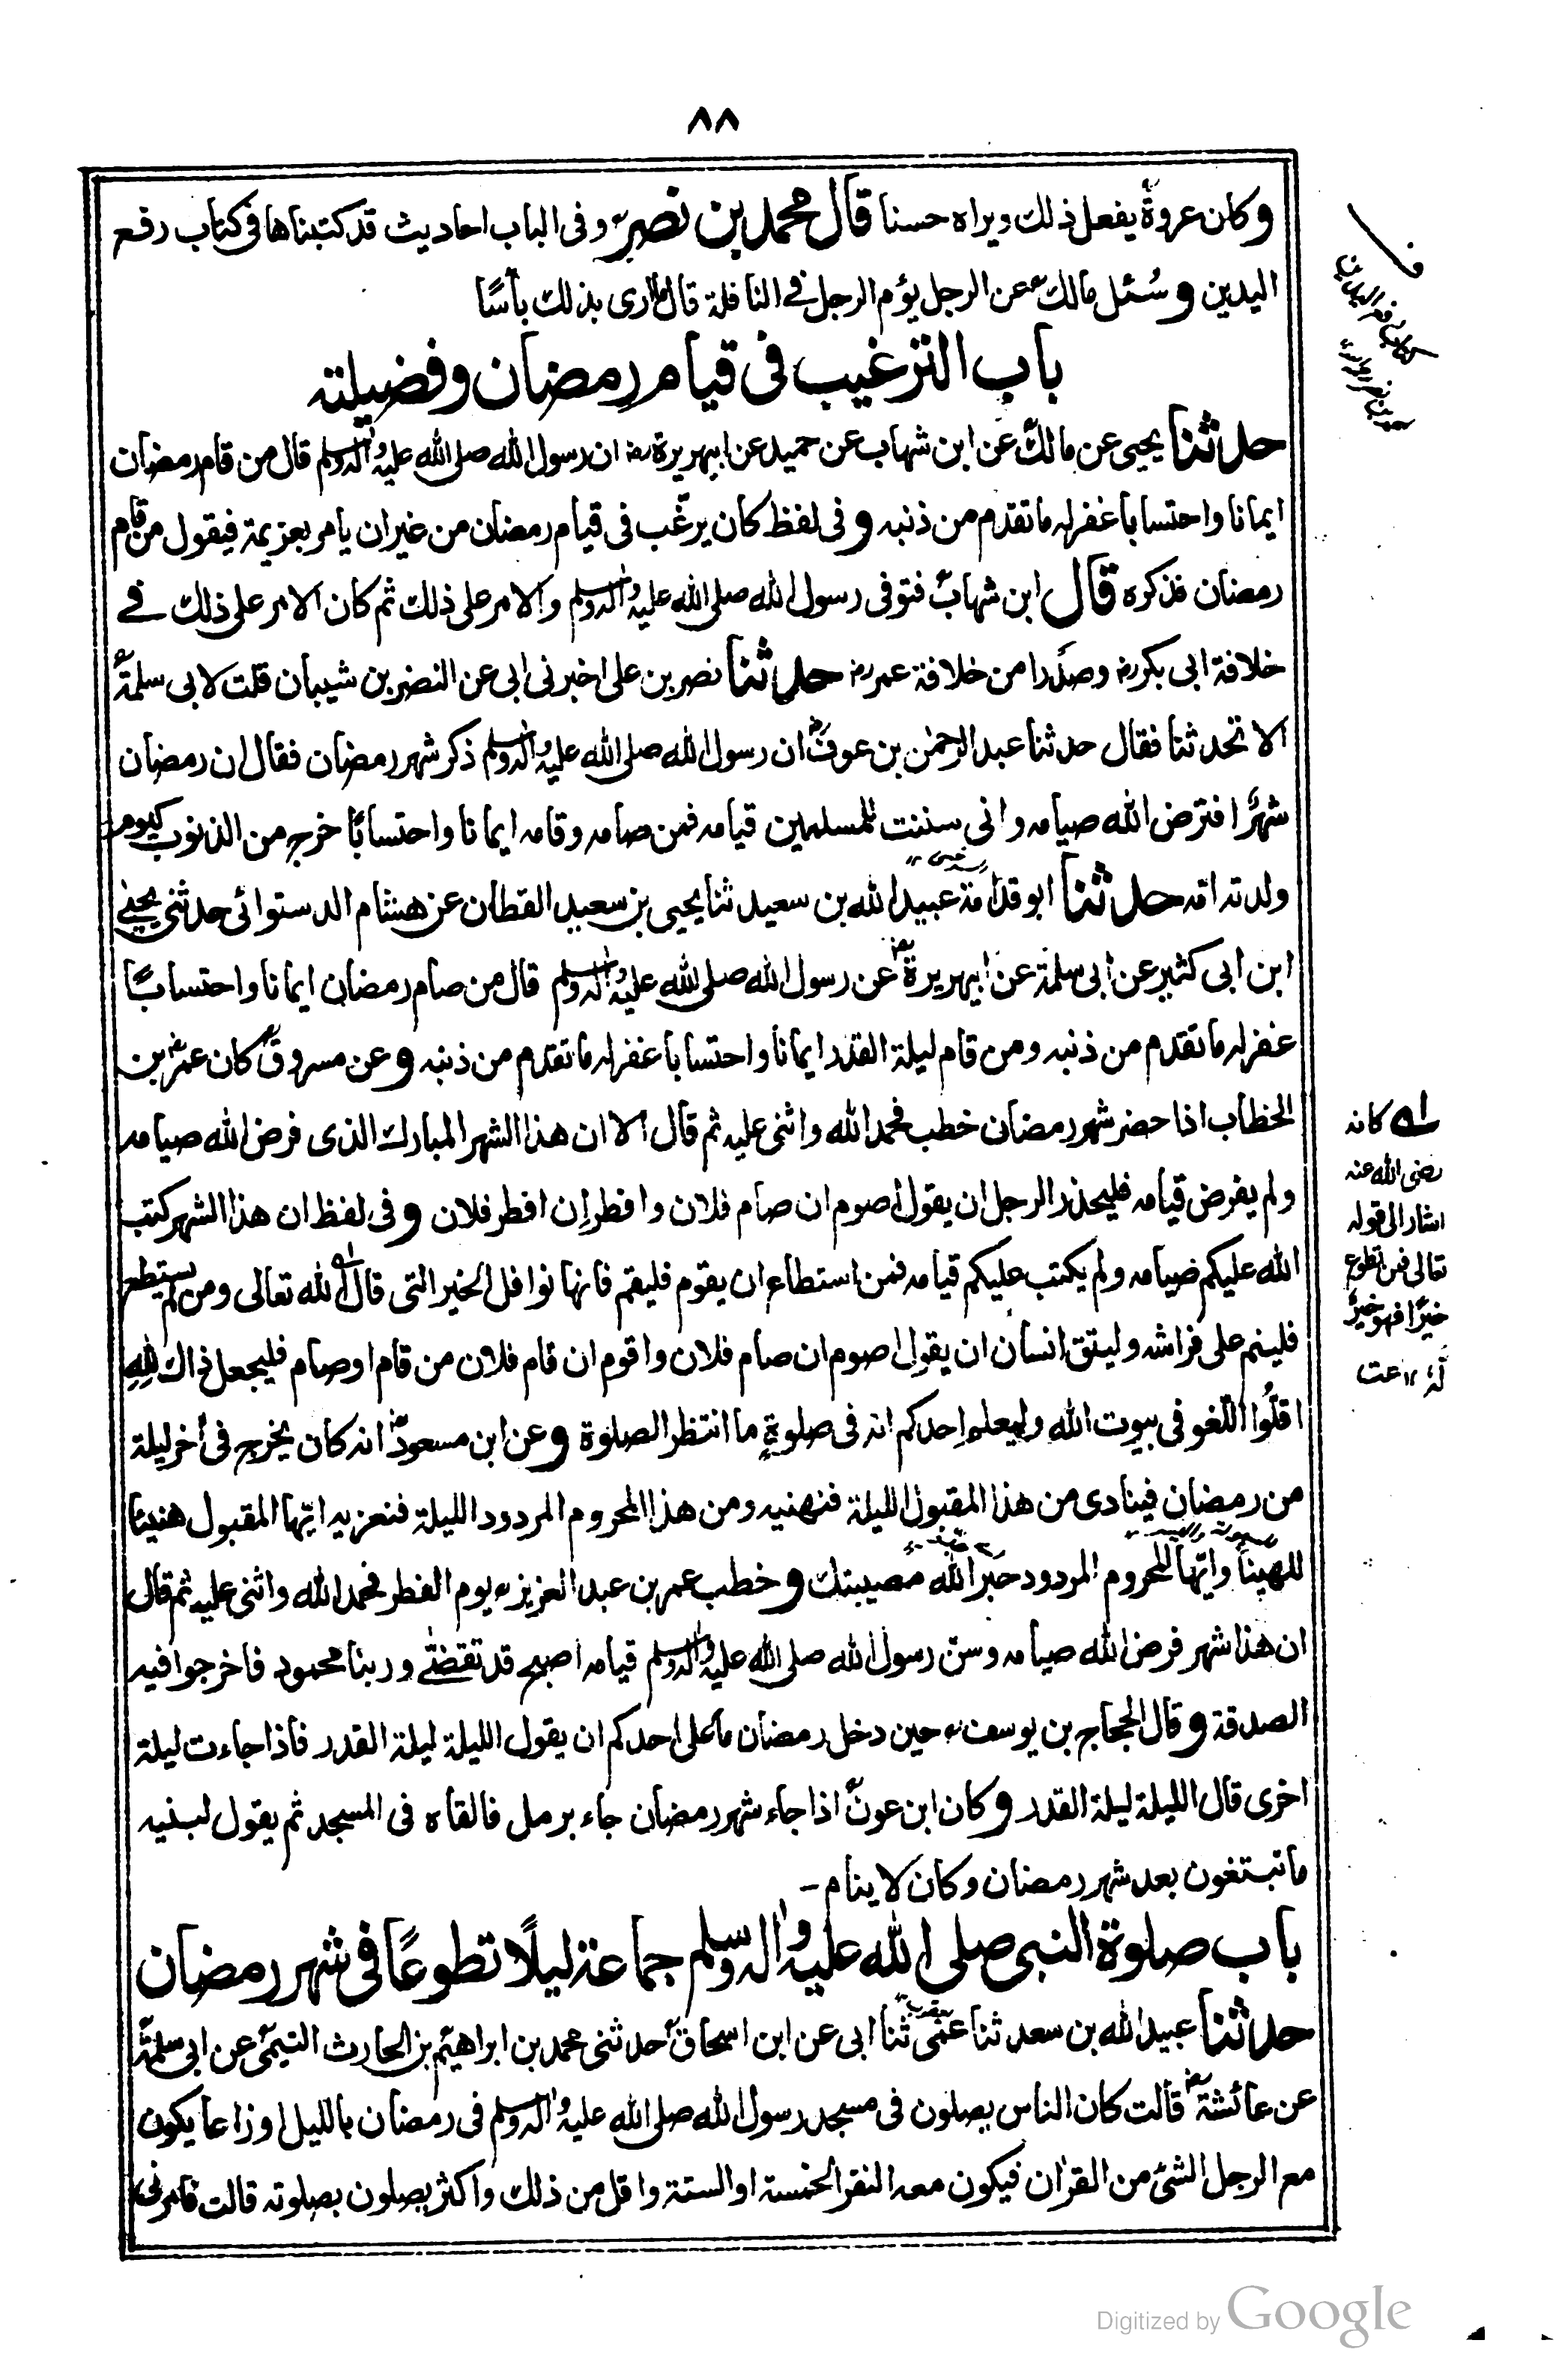 ٨٨
وكان عروة يفعل ذلك ويراه حسنا قال محمد بن نصر وفى الباب احاديث قد كتبناها فى كتاب رفع
اليدين و سُئل مالك عن الرجل يؤم الرجل فى النافلة قال ما ارى بذلك بأسًا
باب الترغيب فى قيام رمضان وفضيلته
حدثنا يحيى عن مالك عن ابن شهاب عن حميد عن ابيهريرة رض ان رسول الله صلى الله عليه واله وسلم قال من قام رمضان
ايمانا واحتسابا غفر له ما تقدم من ذنبه و فى لفظ كان يرغّب فى قيام رمضان من غير ان يامر بعزيمة فيقول من قام
رمضان فذكره قال ابن شهاب فتوفى رسول الله صلى الله عليه واله وسلم والامر على ذلك ثم كان الامر على ذلك فى
خلافة ابى بكر رض وصدرا من خلافة عمر رض حدثنا نصر بن على اخبرنى ابى عن النضر بن شيبان قلت لابى سلمة
الا تحدثنا فقال حدثنا عبد الرحمن بن عوف ان رسول الله صلى الله عليه واله وسلم ذكر شهر رمضان فقال ان رمضان
شهرًا افترض الله صيامه وانى سننت للمسلمين قيامه فمن صامه وقامه ايمانا واحتسابًا خرج من الذنوب كيوم
ولدته امه حدثنا ابو قدامة عبيد الله بن سعيد ثنا يحيى بن سعيد القطان عن هشام الدستوائى حدثنى يحيى
ابن ابى كثير عن ابى سلمة عن ابيهريرة رض عن رسول الله صلى الله عليه واله وسلم قال من صام رمضان ايمانا واحتسابًا
غفر له ما تقدم من ذنبه ومن قام ليلة القدر ايمانا واحتسابا غفر له ما تقدم من ذنبه و عن مسروق كان عمر بن
الخطاب اذا حضر شهر رمضان خطب فحمد الله واثنى عليه ثم قال الا ان هذا الشهر المبارك الذى فرض الله صيامه
ولم يفرض قيامه فليحذر الرجل ان يقول أصوم ان صام فلان وافطر إن افطر فلان و فى لفظ ان هذا الشهر كتب
الله عليكم صيامه ولم يكتب عليكم قيامه فمن استطاع ان يقوم فليقم فانها نوافل الخير التى قال الله تعالى ومن لم يستطع
فلينم على فراشه وليتق انسان ان يقول اصوم ان صام فلان واقوم ان قام فلان من قام او صام فليجعل ذاك لِلّٰهِ
اقلُّوا اللّغو فى بيوت الله وليعلم احدكم انه فى صلوةٍ ما انتظر الصلوة و عن ابن مسعود انه كان يخرج فى أخر ليلة
من رمضان فينادى من هذا المقبول الليلة فنهنيه ومن هذا المحروم المردود الليلة فنعزيه ايّها المقبول هنيئا
للهينا وايّها المحروم المردود جبر الله مصيبتك و خطب عمر بن عبد العزيز يوم الفطر فحمد الله واثنى عليه ثم قال
ان هذا شهر فرض الله صيامه وسنّ رسول الله صلى الله عليه واله وسلم قيامه اصبح قد تقضى وربنا محمود فاخرجوا فيه
الصدقة و قال الحجاج بن يوسف حين دخل رمضان ما على احدكم ان يقول الليلة ليلة القدر فاذا جاءت ليلة
اخرى قال الليلة ليلة القدر و كان ابن عون اذا جاء شهر رمضان جاء برمل فالقاه فى المسجد ثم يقول لبنيه
ما تبتغون بعد شهر رمضان وكان لا ينام -
باب صلوة النبى صلى الله عليه واله وسلم جماعة ليلًا تطوعًا فى شهر رمضان
حدثنا عبيد الله بن سعد ثنا عمى ثنا ابى عن ابن اسحاق حدثنى محمد بن ابراهيم بن الحارث التيمى عن ابى سلمة
عن عائشة رض قالت كان الناس يصلون فى مسجد رسول الله صلى الله عليه واله وسلم فى رمضان بالليل اوزاعا يكون
مع الرجل الشئ من القران فيكون معه النفر الخمسة او الستة واقل من ذلك واكثر يصلون بصلوته قالت فامرنى
كانه
رضى الله عنه
اشار الى قوله
تعالى فمن تطوع
خيرًا فهو خيرٌ
لهٗ ١٢ عت
Digitized by Google